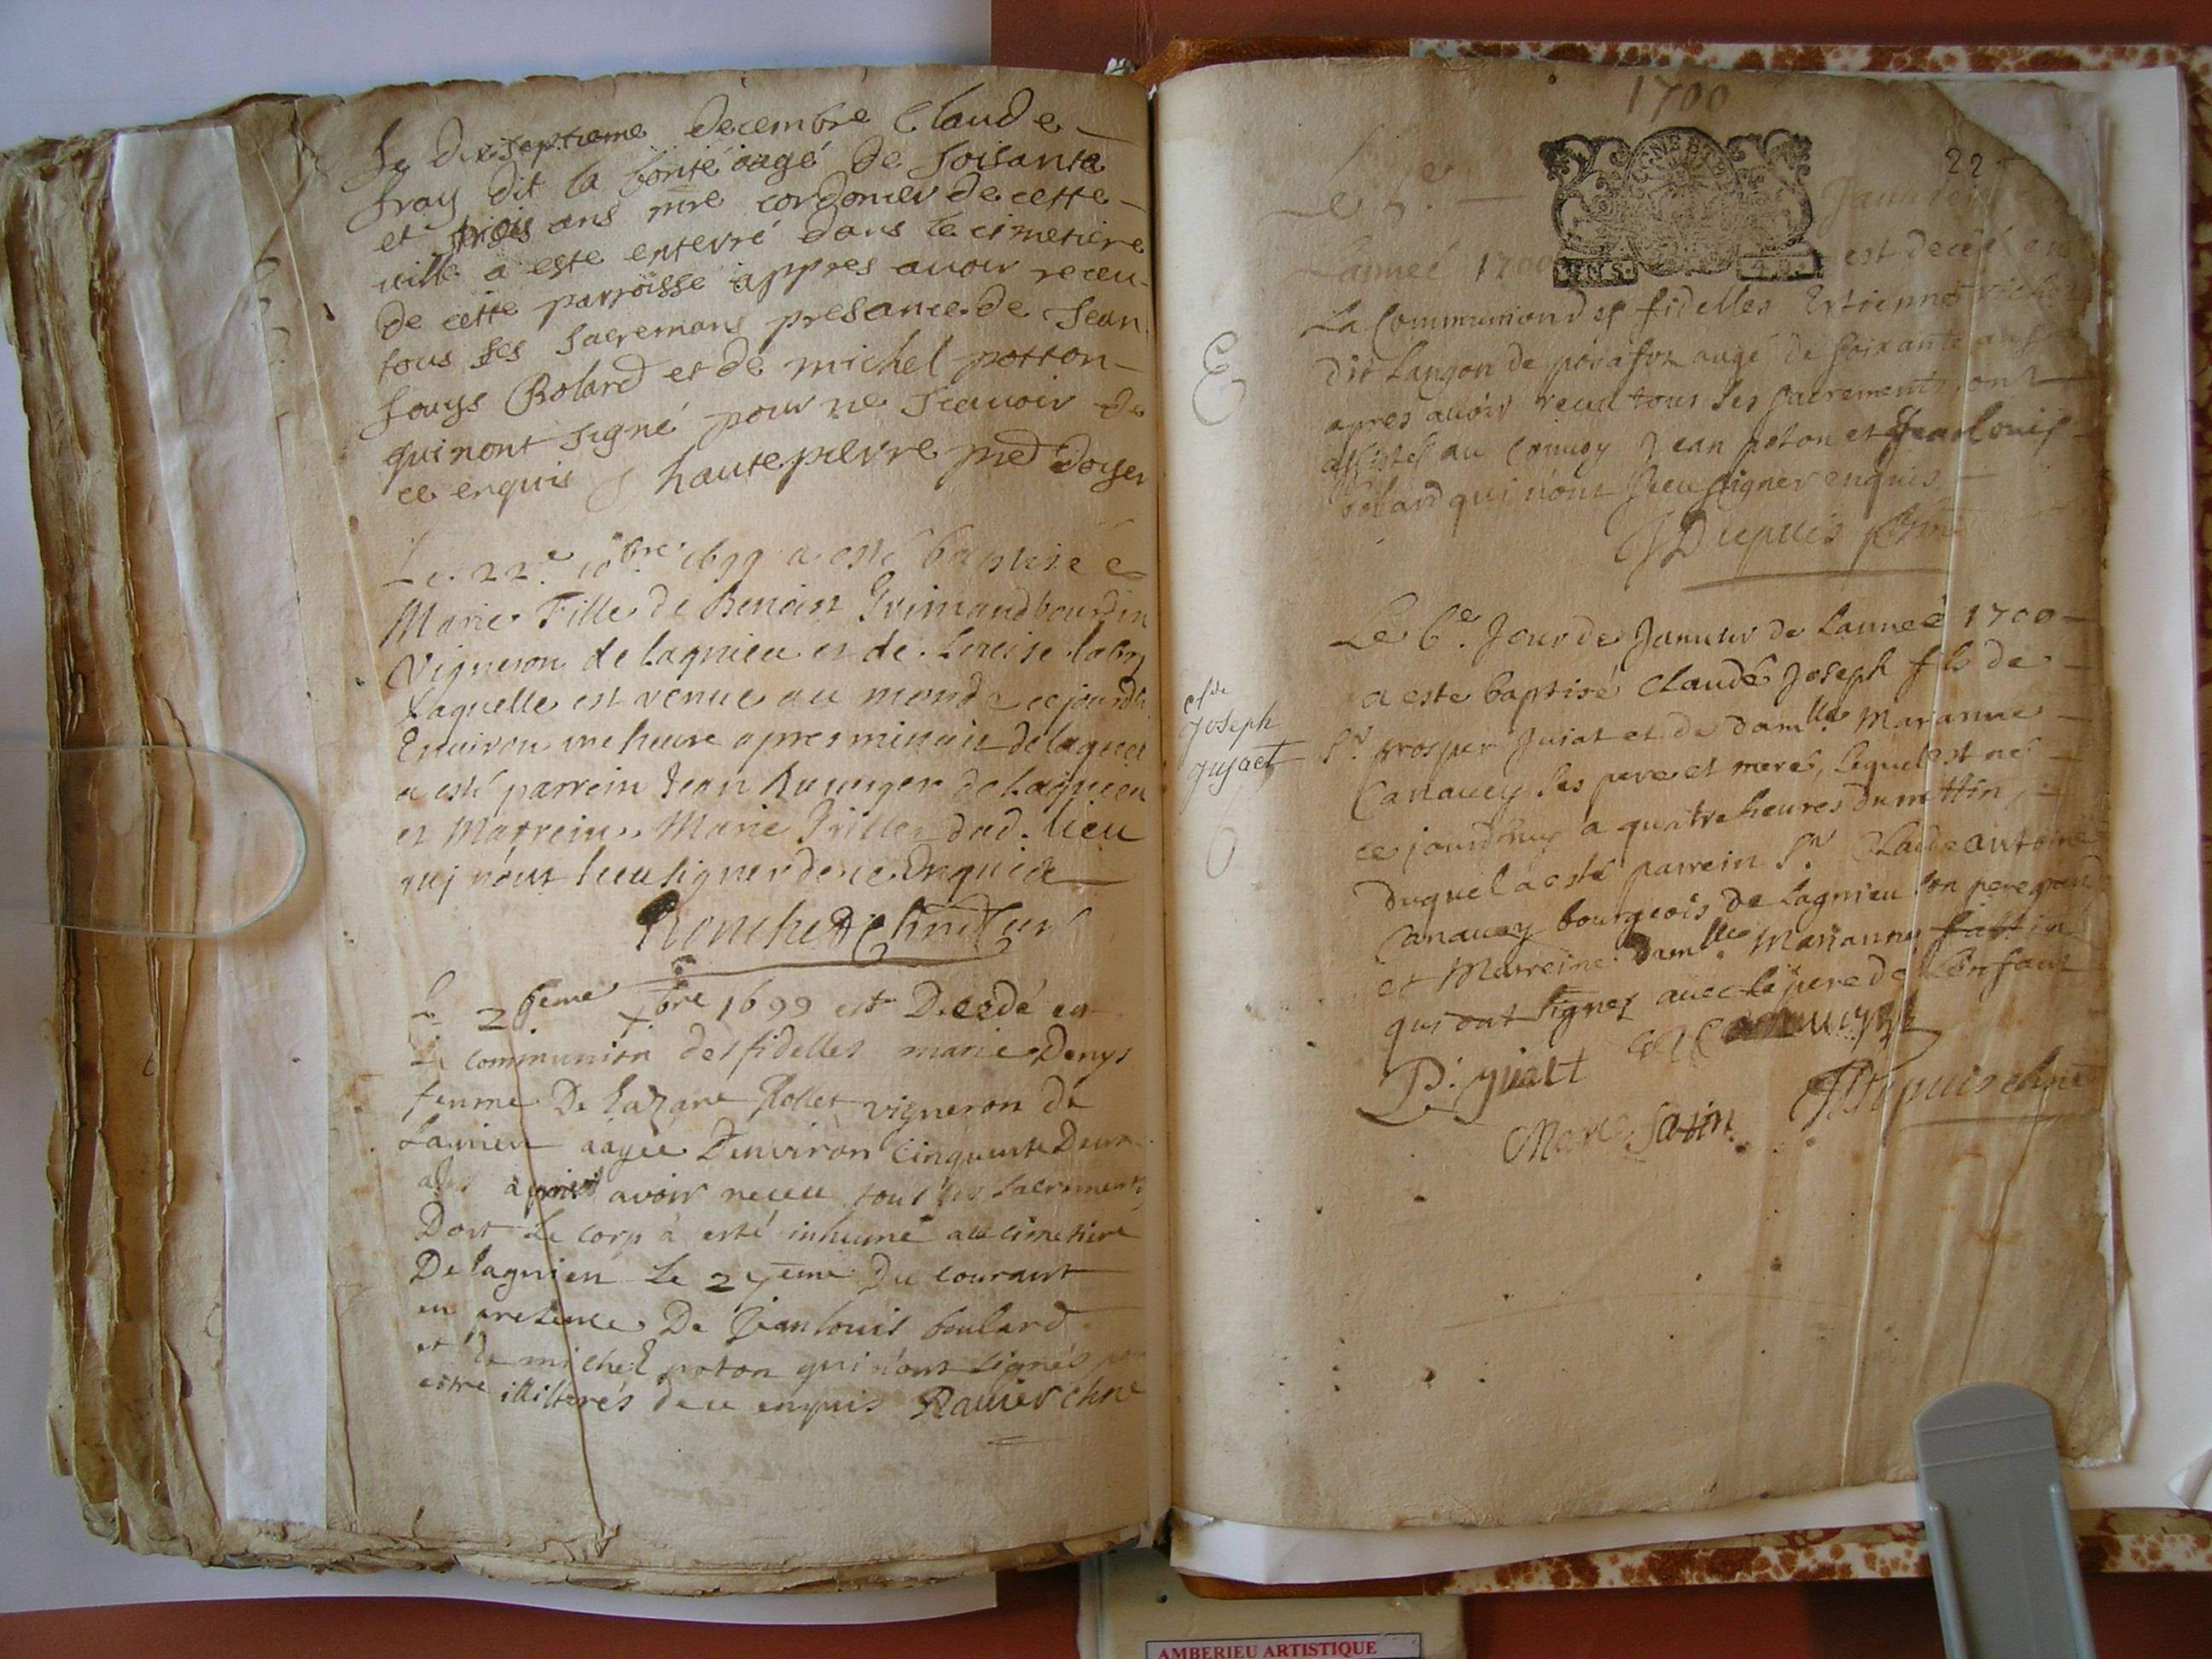 Le Dixseptieme decembre Claude
fray dit la bonté aagé de soisante
et trois ans mre cordonier de cette
ville a este enterré dans le cimetiere
de cette parroisse appres avoir receu
tous ses sacremans presance de Jean
Louys Bolard et de michel potton
qui nont signé pour ne scavoir de
ce enquis hautepierre pre doyen
Le 22e 10bre 1699 a esté baptisée
Marie Fille de Benoist Grimand bourdin
Vigneron de Lagnieu et de Louise
Laquelle est venue au monde ce jourdh
Environ une heure apres minuit de laquel
a esté parrein Jean de Lagnieu
et Marreine Marie Prillier dud. lieu
qui n'ont sceu signer de ce Enquis
Le 26eme xbre 1699 est Decedé en
La communion des fidelles marie Denys
femme De Lazare Rollet vigneron de
Lanieu aagée Denviron cinquante Deux
ans apres avoir receu tous les sacrements
Dont Le corp à esté inhumé au cimetiere
De lagnieu Le 27eme Du courant
en presence De Jean louis boulard
et de michel poton qui n'ont signés pour
estre illiterés de ce enquis Ravier chne
1700
22
Le 5e Janvier
Lanneé 1700 est decedé en
La Communion des fidelles Estienne
dit Langon de posafol augé de soixante ans
apres avoir receu tous ses sacrements, ont
assistés au convoy Jean poton et Jean Louis
bolard qui n'ont sceu signer enquis
Dupuis chne
Le 6e Jour de Janvier de Lanneé 1700
a este baptisé Claude Joseph fils de
Sr. prosper Guiat et de damlle Marianne
Canavey ses pere et mere, lequel est né
ce jourdhuy a quatre heures du mattin
duquel a esté parrein Sr. Claude antoine
Canavey bourgeois de Lagnieu son pere grand
et Marreine damlle Marianne
qui ont signez avec le pere de L'enfant
cl de
Joseph
guyact
P. guiact
Marie
Dupuis chne
AMBERIEU ARTISTIQUE